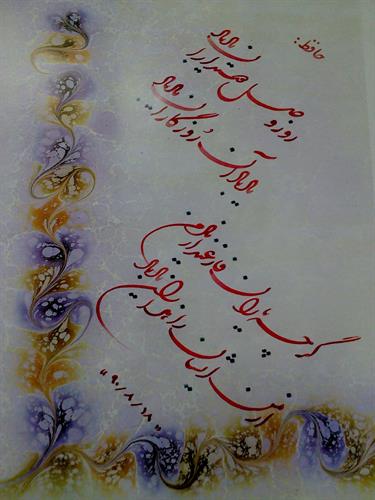 حافظ:
روز وصل دوستداران یاد باد
یاد باد آن روزگاران یاد باد
گرچه یاران فارغند از یاد من
از من ایشان را هزاران یاد باد
"۹۰/۸/۱۸"